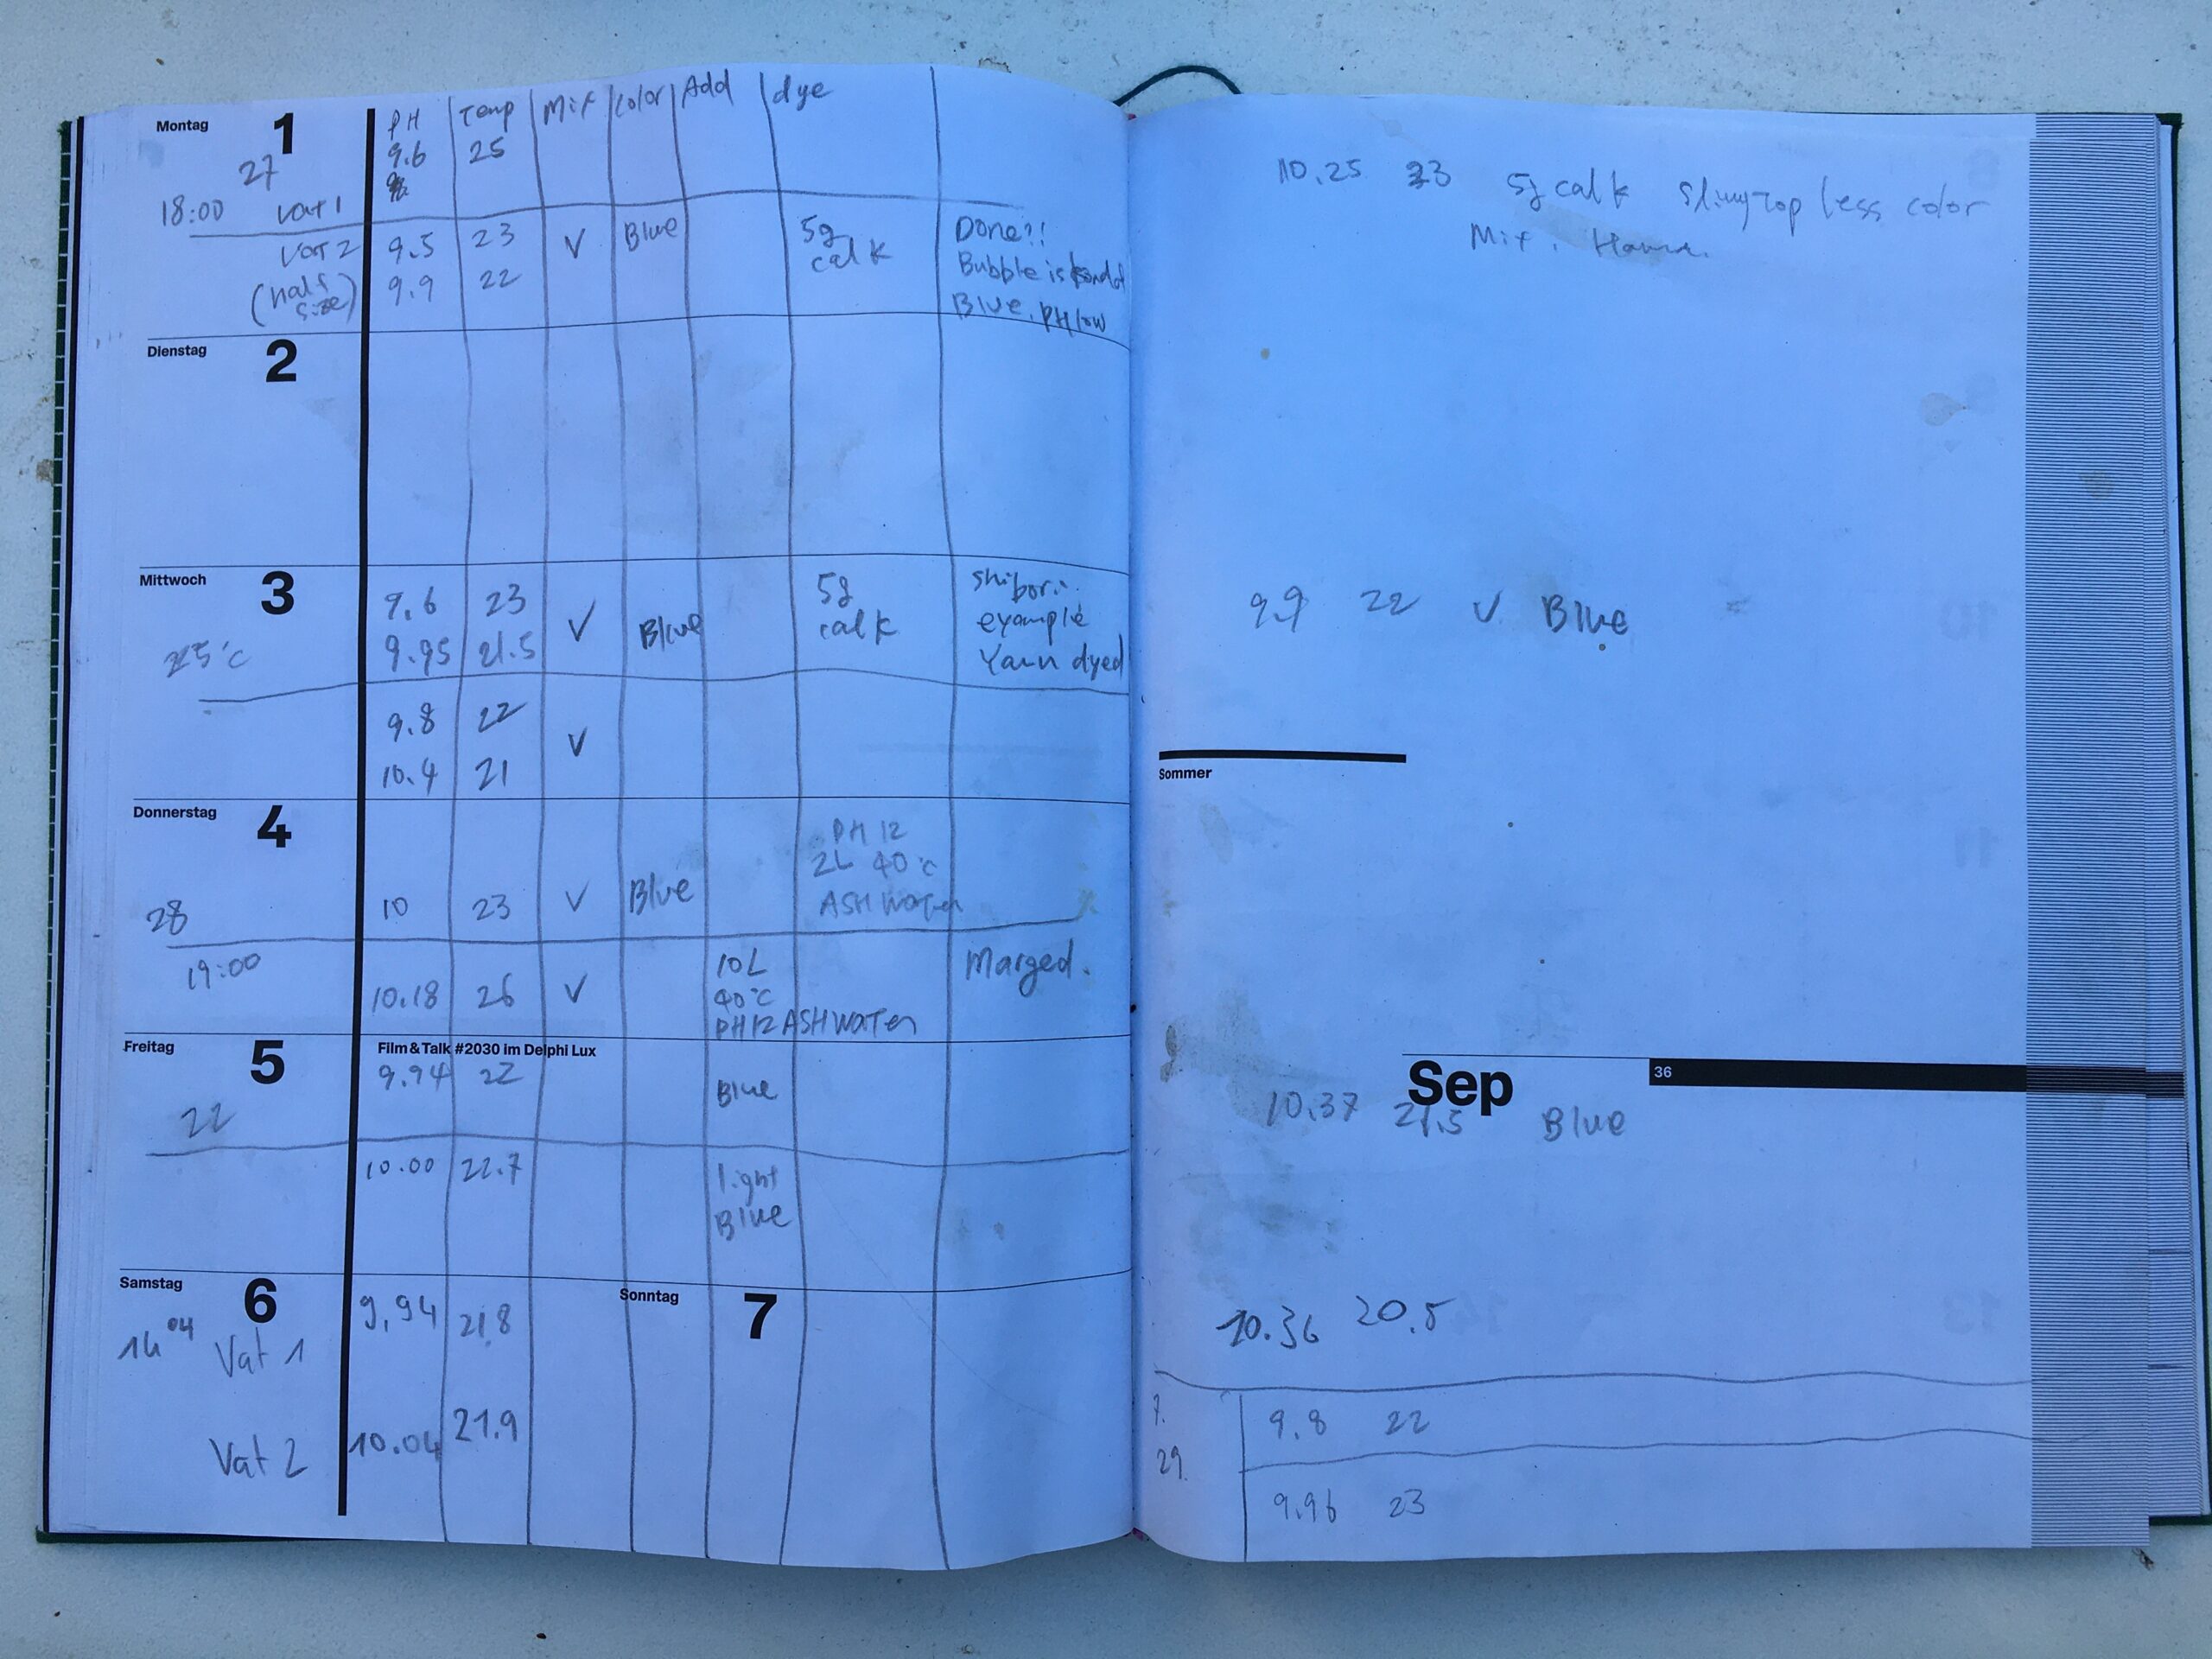 PH Temp Mix Color Add dye
Montag 1 9.6 25
27
18:00 Vat 1
Vat 2 9.5 23 V Blue 5g Done?!
(half 9.9 22 calk Bubble is
size) Blue. PH low
Dienstag 2
Mittwoch 3 9.6 23 V Blue 5g shibori
25°C 9.95 21.5 calk example
Yarn dyed
9.8 22 V
10.4 21
Donnerstag 4 PH 12
2L 40°C
28 10 23 V Blue ASH WATER
19:00 10L Marged.
10.18 26 V 40°C
PH12 ASH WATER
Freitag 5 Film & Talk #2030 im Delphi Lux
9.94 22 Blue
22
10.00 22.7 light
Blue
Samstag 6 9,94 21,8 Sonntag 7
14 04 Vat 1
Vat 2 10.04 21.9
10.25 23 5g calk slimy top less color
Mix.
9.9 22 V Blue
Sommer
Sep 36
10.37 21.5 Blue
10.36 20.5
7. 9.8 22
29.
9.96 23